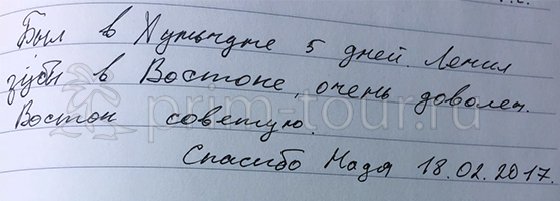 Был в Хуньчуне 5 дней. Лечил
зубы в Востоке, очень доволен.
Восток советую.
Спасибо Надя 18.02.2017.
prim-tour.ru